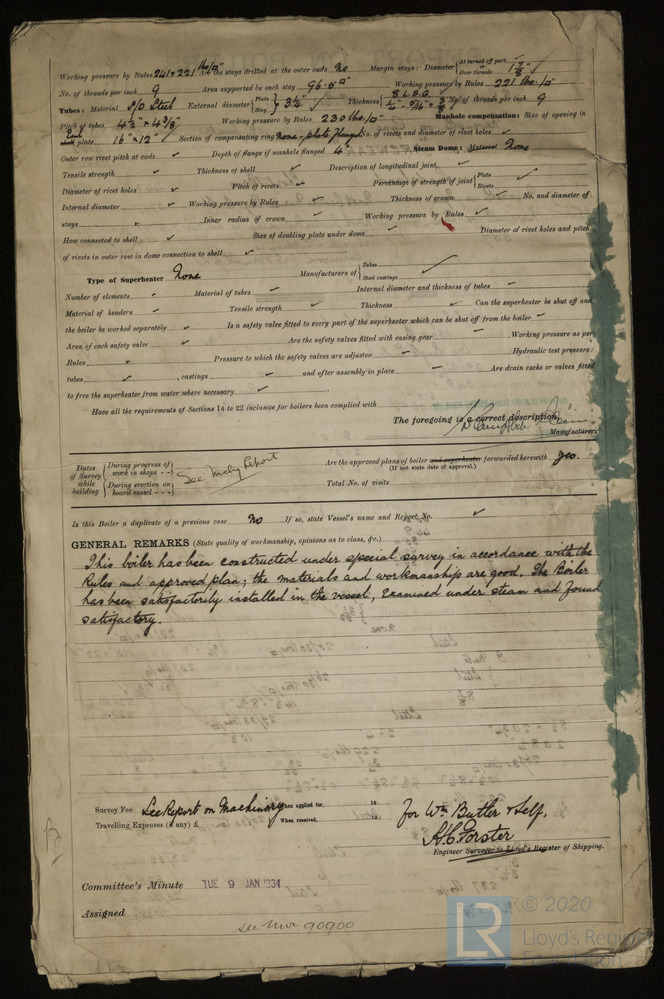 Working pressure by Rules 241 & 221 lbs/□" Are the stays drilled at the outer ends No Margin stays: Diameter { At turned off part, Over threads 1 7/8"
No. of threads per inch 9 Area supported by each stay 96.5 □" Working pressure by Rules 221 lbs./□"
Tubes: Material S/D Steel External diameter { Plain Stay } 3 1/4" ✓ Thickness { 8 L.S.G. 1/4" - 5/16" & 3/8" No. of threads per inch 9
Pitch of tubes 4 1/2" × 4 3/8" Working pressure by Rules 230 lbs/□" Manhole compensation: Size of opening in
End shell plate 16" × 12" ✓ Section of compensating ring None - plate flanged No. of rivets and diameter of rivet holes ✓
Outer row rivet pitch at ends ✓ Depth of flange if manhole flanged 4" Steam Dome: Material None
Tensile strength ✓ Thickness of shell ✓ Description of longitudinal joint ✓
Diameter of rivet holes ✓ Pitch of rivets ✓ Percentage of strength of joint { Plate Rivets ✓
Internal diameter ✓ Working pressure by Rules ✓ Thickness of crown ✓ No. and diameter of
stays ✓ Inner radius of crown ✓ Working pressure by Rules ✓
How connected to shell ✓ Size of doubling plate under dome ✓ Diameter of rivet holes and pitch
of rivets in outer row in dome connection to shell ✓
Type of Superheater None Manufacturers of { Tubes Steel castings ✓
Number of elements ✓ Material of tubes ✓ Internal diameter and thickness of tubes ✓
Material of headers ✓ Tensile strength ✓ Thickness ✓ Can the superheater be shut off and
the boiler be worked separately ✓ Is a safety valve fitted to every part of the superheater which can be shut off from the boiler ✓
Area of each safety valve ✓ Are the safety valves fitted with easing gear ✓ Working pressure as per
Rules ✓ Pressure to which the safety valves are adjusted ✓ Hydraulic test pressure:
tubes ✓, castings ✓ and after assembly in place ✓ Are drain cocks or valves fitted
to free the superheater from water where necessary ✓
Have all the requirements of Sections 14 to 22 inclusive for boilers been complied with
The foregoing is a correct description,
Manufacturer.
Dates of Survey while building { During progress of work in shops - - During erection on board vessel - - - } See Mchy Report
Are the approved plans of boiler and superheater forwarded herewith yes.
(If not state date of approval.)
Total No. of visits
Is this Boiler a duplicate of a previous case No If so, state Vessel's name and Report No. ✓
GENERAL REMARKS (State quality of workmanship, opinions as to class, &c.)
This boiler has been constructed under special survey in accordance with the
Rules and approved plan; the materials and workmanship are good. The Boiler
has been satisfactorily installed in the vessel, Examined under steam and found
satisfactory.
Survey Fee See Report on Machinery When applied for, 19
Travelling Expenses (if any) £ When received, 19
for Wm Butler & Self,
A.C. Forster
Engineer Surveyor to Lloyd's Register of Shipping.
Committee's Minute TUE 9 JAN 1934
Assigned
see Mwr 90900
LR © 2020
Lloyd's Register
Foundation